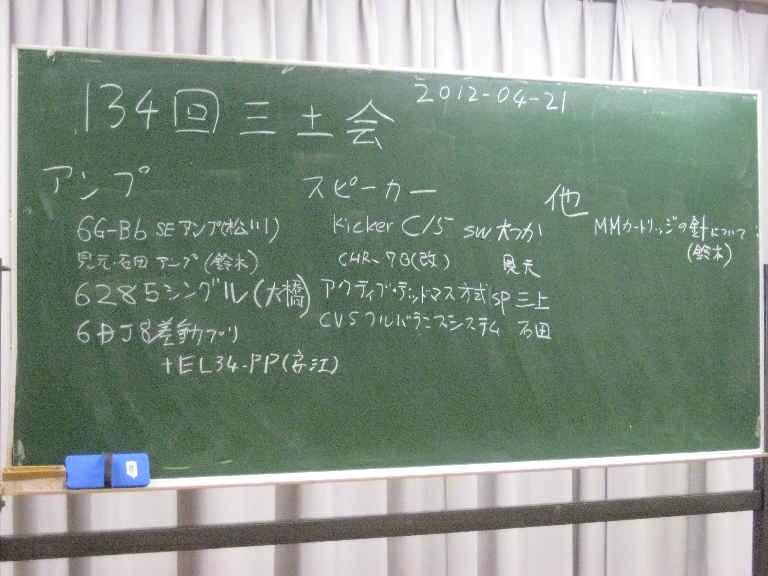 134回三土会
2012-04-21
アンプ
6G-B6 SEアンプ(松川)
見元・石田アンプ(鈴木)
6285シングル(大橋)
6DJ8差動プリ
+EL34-PP(
スピーカー
Kicker C15 SW 大つか
CHR-70(改) 見元
アクティブ・デッドマス方式SP 三上
CVSフルバランスシステム 石田
他
MMカートリッジの針について
(鈴木)